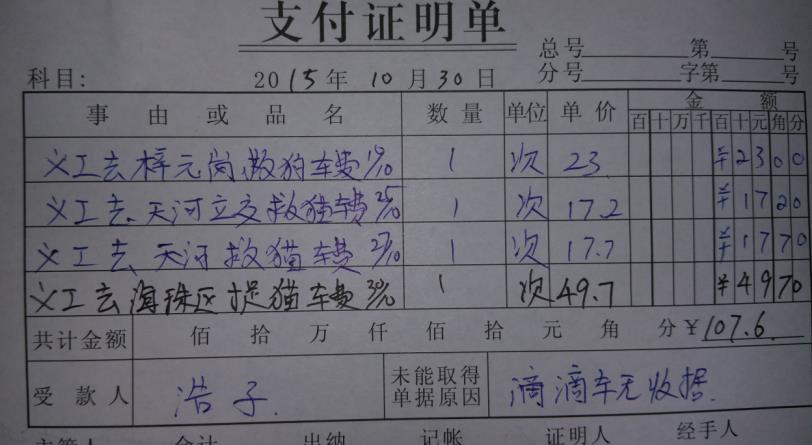 支付证明单
总号 第 号
科目: 2015年 10月 30日 分号 字第 号
事由或品名 数量 单位 单价 金额
百十万千百十元角分
义工去梓元岗救狗车费 1 次 23 ¥2300
义工去天河立交救猫车费 1 次 17.2 ¥1720
义工去天河救猫车费 1 次 17.7 ¥1770
义工去海珠区捉猫车费 1 次 49.7 ¥4970
共计金额 佰 拾 万 仟 佰 拾 元 角 分 ¥107.6
受款人 浩子 未能取得单据原因 滴滴车无收据.
主管人 会计 出纳 记帐 证明人 经手人